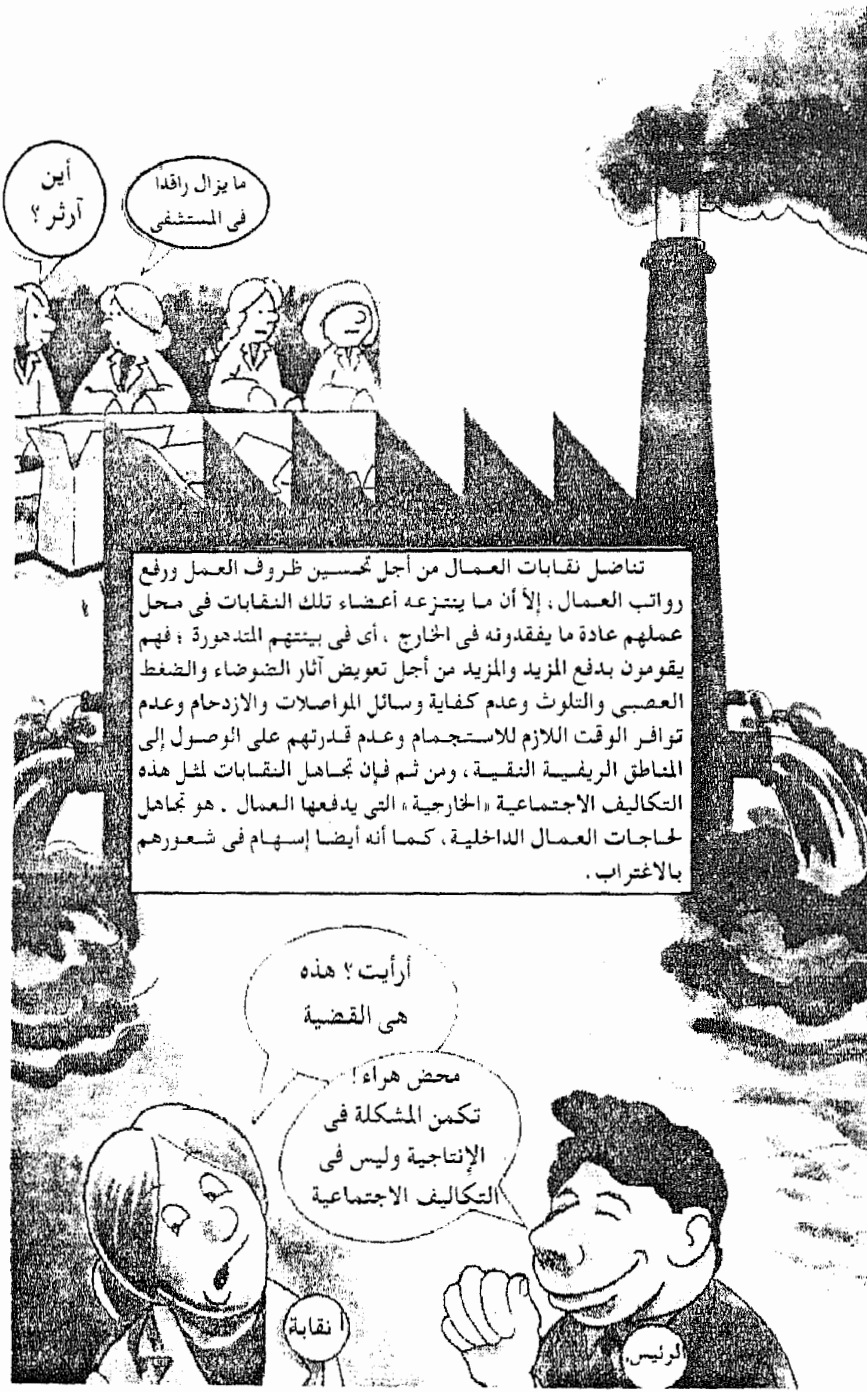 أين
آرثر ؟
ما يزال راقدا
فى المستشفى
تناضل نقابات العمال من أجل تحسين ظروف العمل ورفع
رواتب العمال ، إلاّ أن ما ينتزعه أعضاء تلك النقابات فى محل
عملهم عادة ما يفقدونه فى الخارج ، أى فى بيئتهم المتدهورة ؛ فهم
يقومون بدفع المزيد والمزيد من أجل تعويض آثار الضوضاء والضغط
العصبى والتلوث وعدم كفاية وسائل المواصلات والازدحام وعدم
توافر الوقت اللازم للاستجمام وعدم قدرتهم على الوصول إلى
المناطق الريفية النقية ، ومن ثم فإن تجاهل النقابات لمثل هذه
التكاليف الاجتماعية «الخارجية» التى يدفعها العمال . هو تجاهل
لحاجات العمال الداخلية ، كما أنه أيضا إسهام فى شعورهم
بالاغتراب .
أرأيت ؟ هذه
هى القضية
محض هراء !
تكمن المشكلة فى
الإنتاجية وليس فى
التكاليف الاجتماعية
نقابة
الرئيس